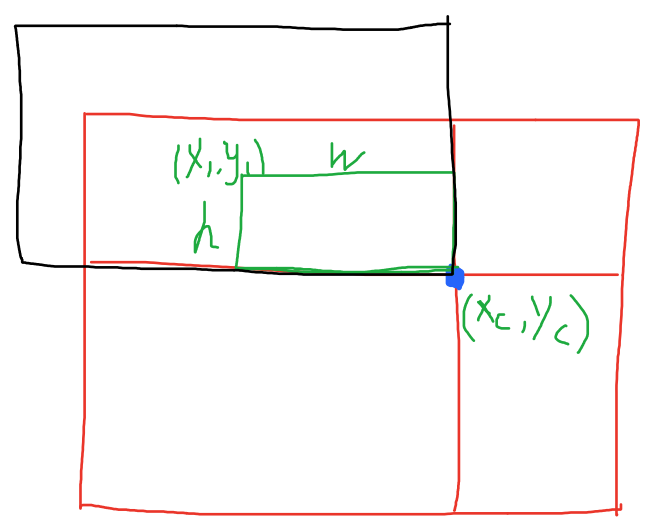 (x₁,y₁) w
h
(x_c,y_c)